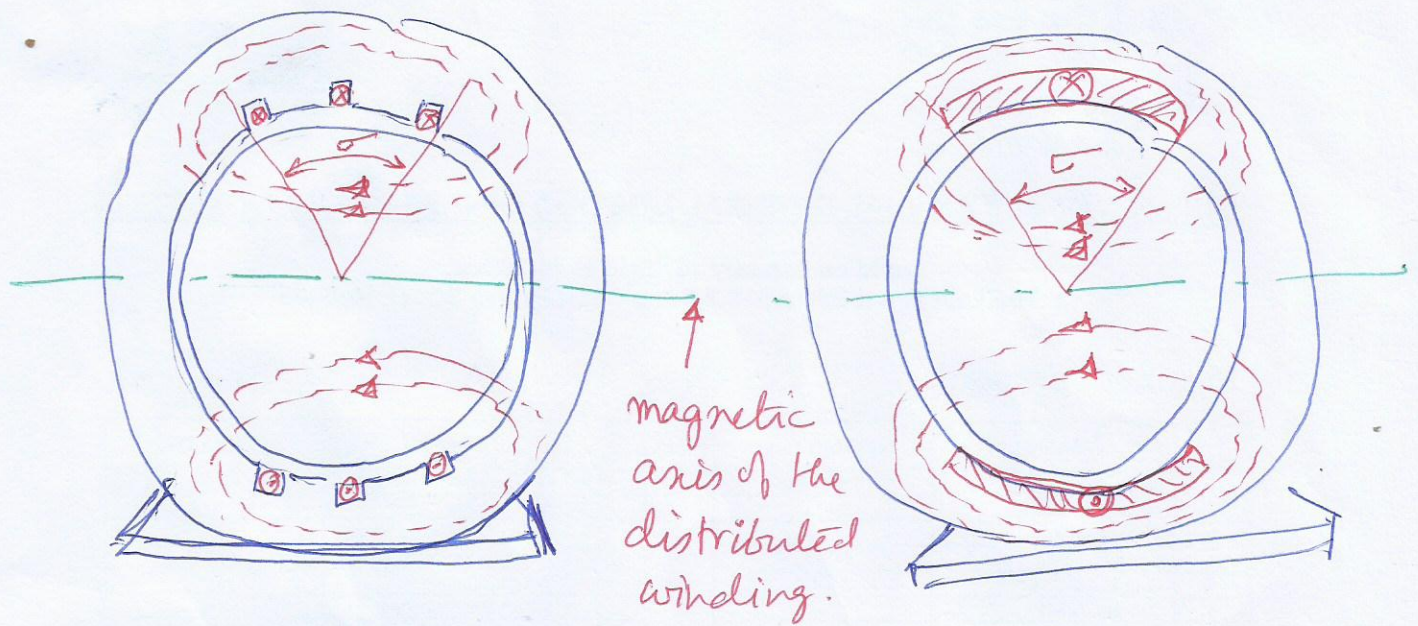 σ
σ
magnetic
axis of the
distributed
winding.